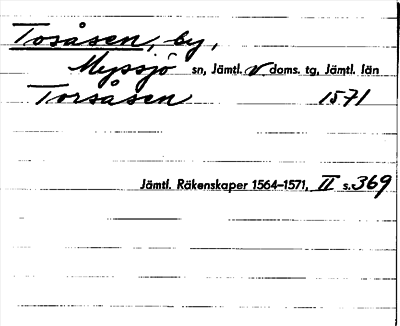 Tosåsen, by,
Myssjö sn, Jämtl. v doms. tg, Jämtl. län
Torsåsen 1571
Jämtl. Räkenskaper 1564–1571, II s. 369